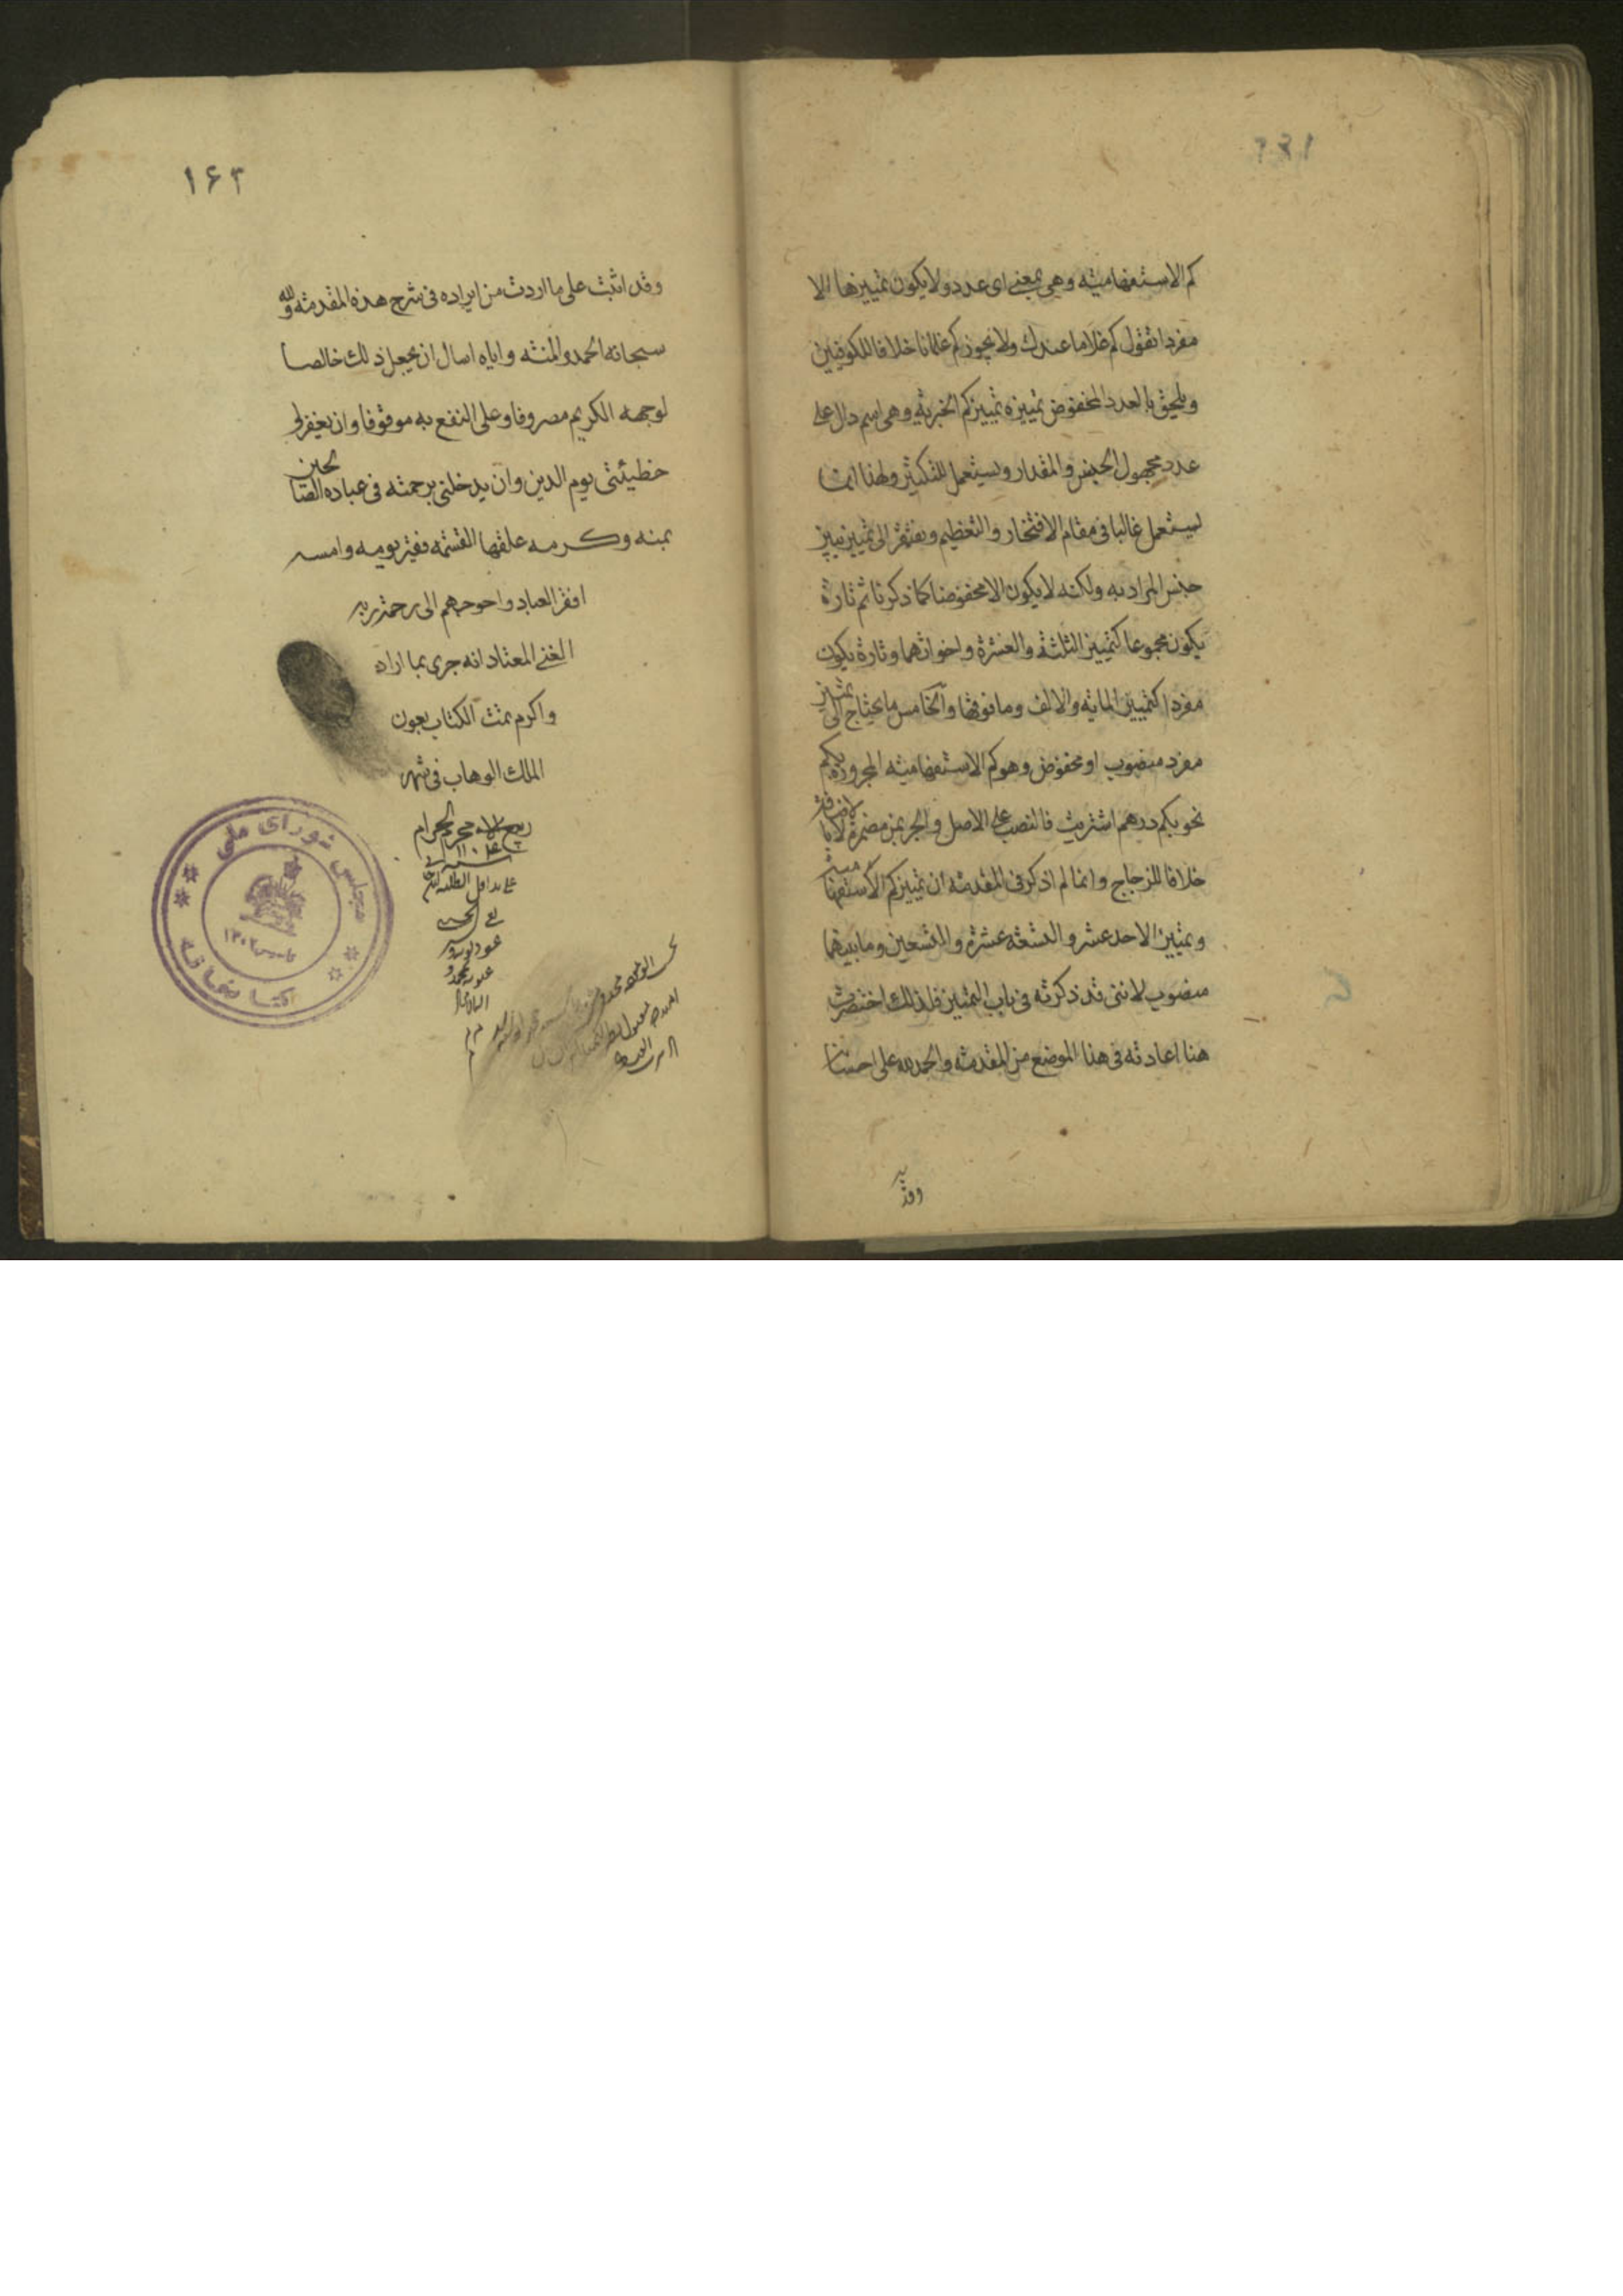 كم الاستفهامية وهي بمعنى اى عدد ولا يكون تمييزها الا
مفردا تقول كم غلاما عندك ولا يجوز كم غلمانا خلافا للكوفيين
ويلحق بالعدد المخفوض تمييزه تمييز كم الخبرية وهى اسم دال على
عدد مجهول الجنس والمقدار ويستعمل للتكثير ولهذا انما
يستعمل غالبا في مقام الافتخار والتعظيم ويفتقر الى تمييز يبين
جنس المراد به ولكنه لا يكون الا مخفوضا كما ذكرنا ثم تارة
يكون مجموعا كتمييز الثلثة والعشرة واخواتهما وتارة يكون
مفردا كتمييز الماية والالف وما فوقها والخامس ما يحتاج الى تمييز
مفرد منصوب او مخفوض وهو كم الاستفهامية المجرورة
نحو بكم درهم اشتريت فالنصب على الاصل والجر بمن مضمرة لا بالاضافة
خلافا للزجاج وانما لم اذكر في المقدمة ان تمييز كم الاستفهامية
وتمييز الاحد عشر والتسعة عشرة والتسعين وما بينهما
منصوب لانني قد ذكرته في باب التمييز فلذلك اختصرت
هنا اعادته في هذا الموضع من المقدمة والحمد لله على احسانه
وقد
۱۶۳
وقد اتيت على ما اردت من ايراده في شرح هذه المقدمة ولله
سبحانه الحمد والمنة واياه اسال ان يجعل ذلك خالصا
لوجهه الكريم مصروفا وعلى النفع به موقوفا وان يغفر لي
خطيئتي يوم الدين وان يدخلني برحمته في عباده الصالحين
بمنه وكرمه علقها لنفسه فقير يومه وامسه
افقر العباد واحوجهم الى رحمة ربه
الغنى المعتاد انه جرى بما اراد
واكرم تمت الكتاب بعون
الملك الوهاب في شهر
محرم الحرام
مجلس شورای ملی
کتابخانه
تاسیس ۱۳۰۲